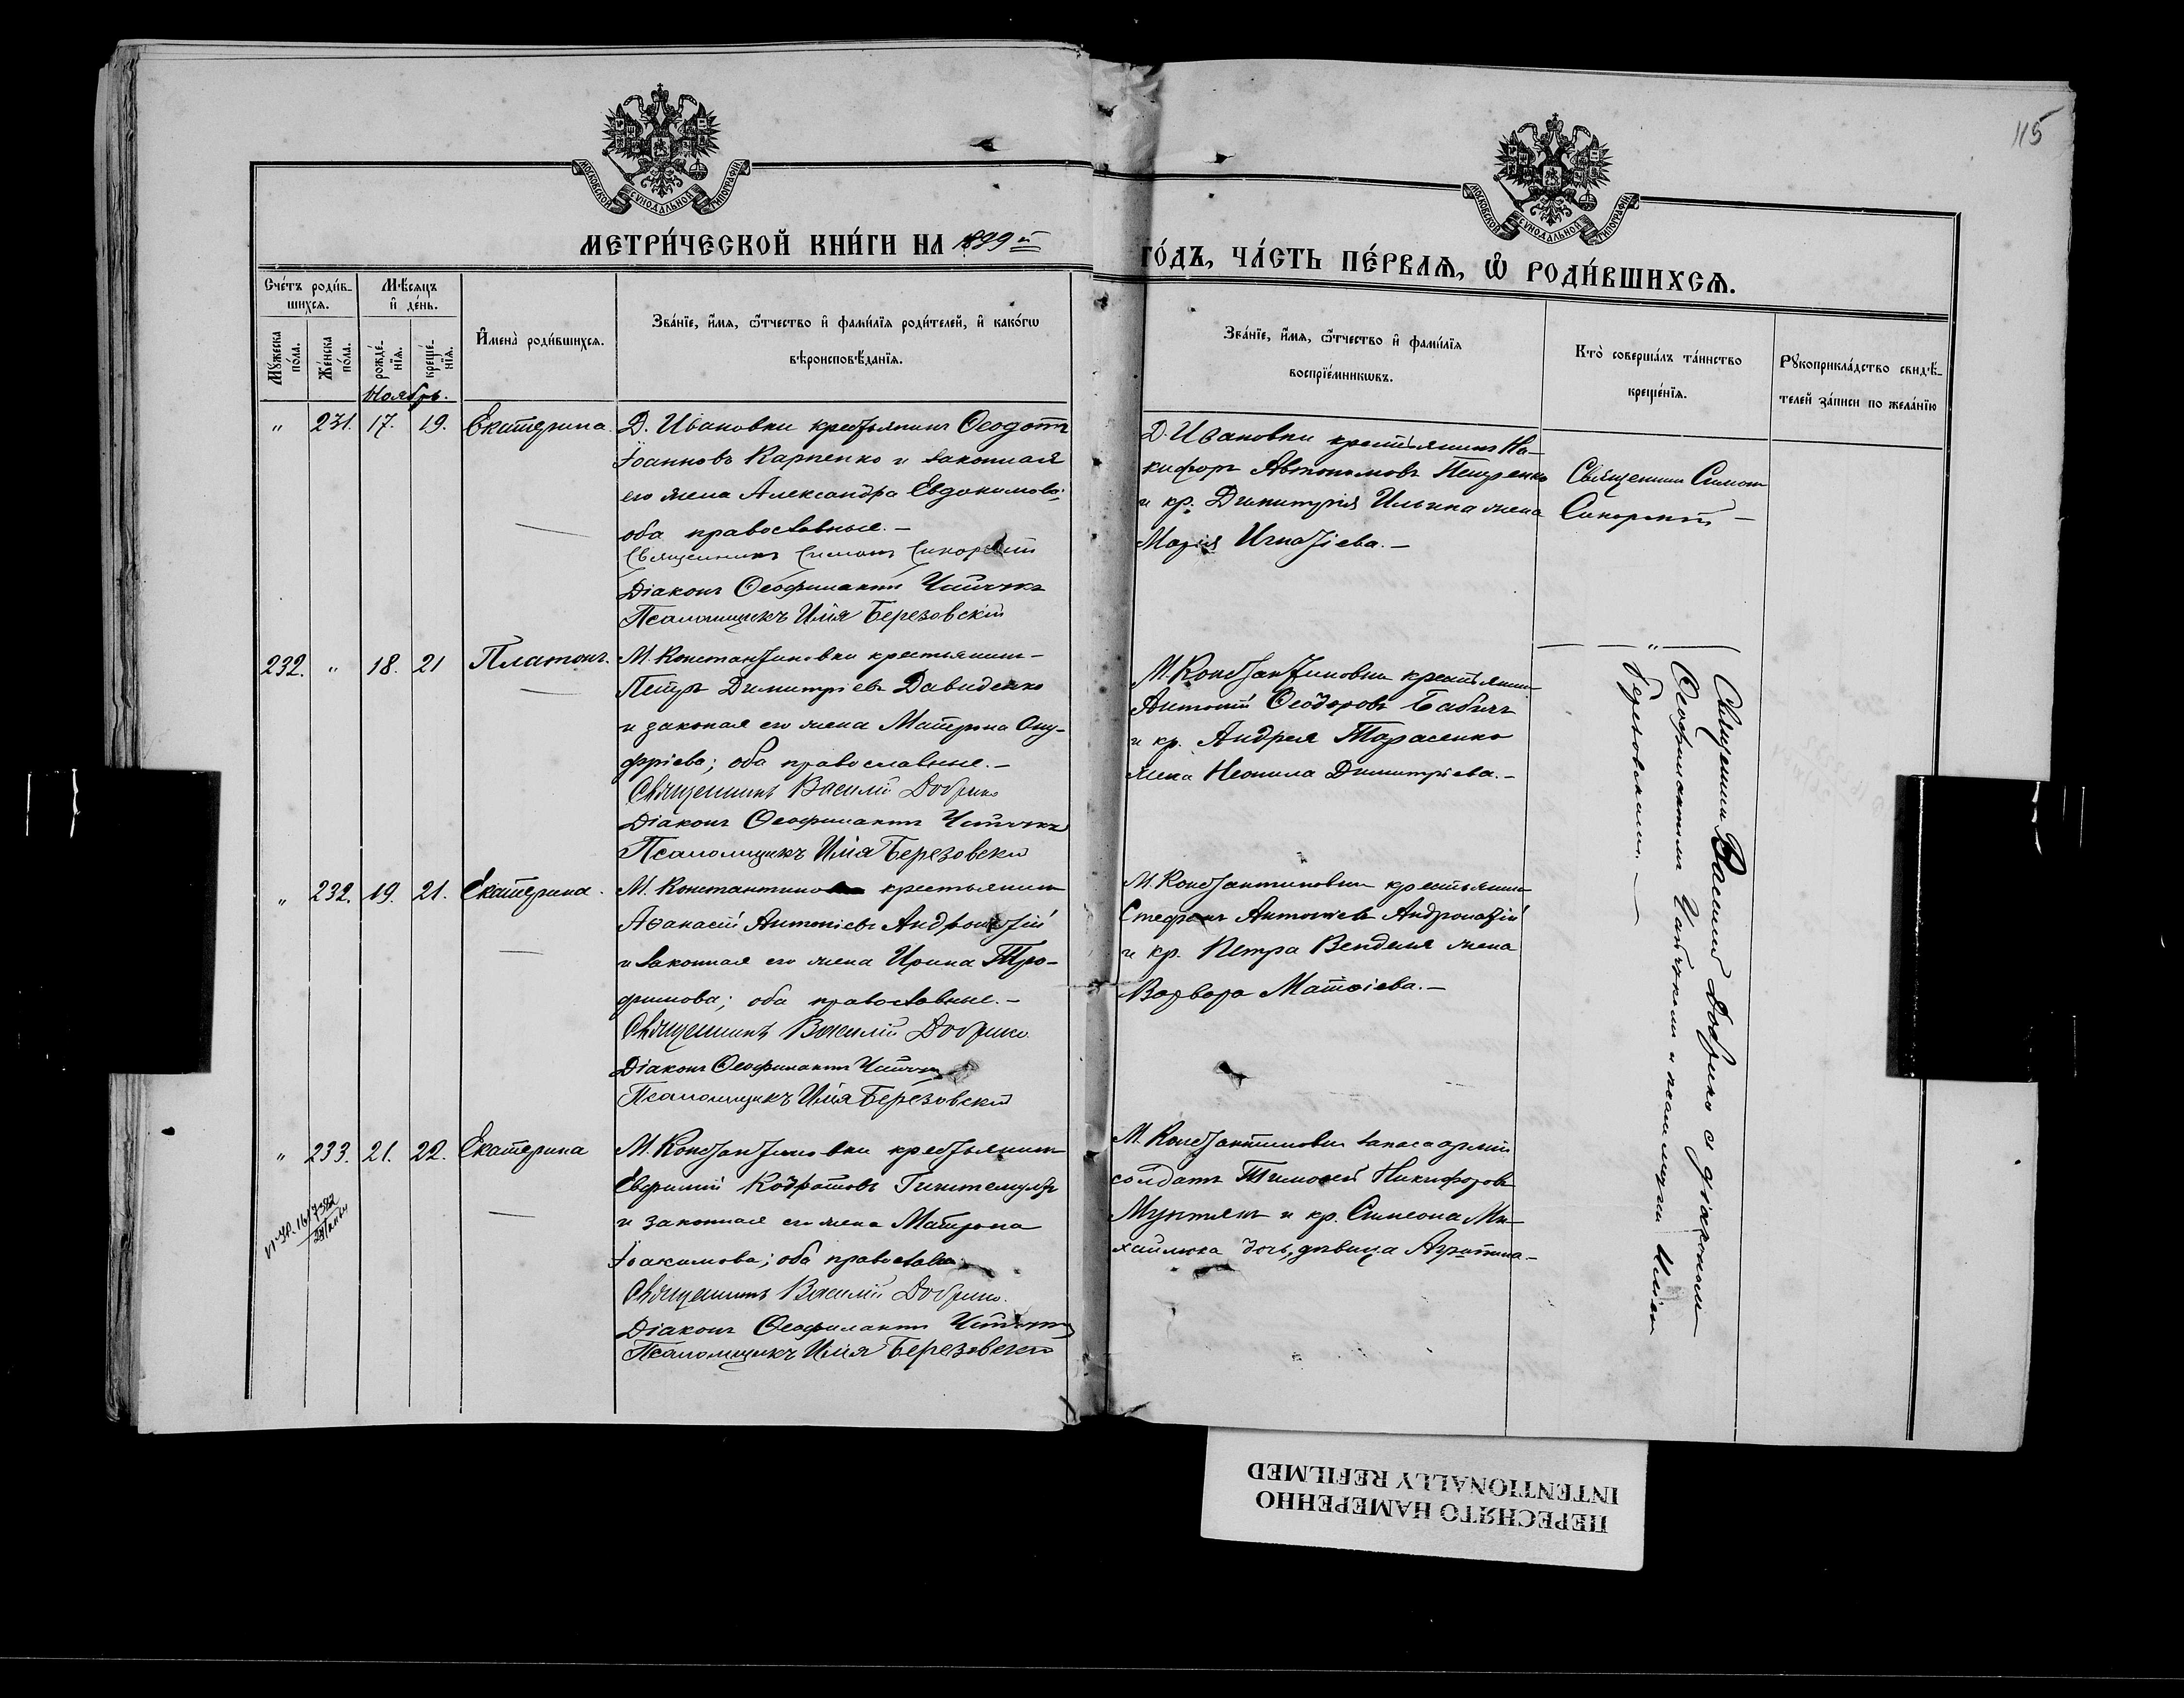 115
МОСКОВСКОЙ СУНОДАЛЬНОЙ ТИПОГРАФІИ
МОСКОВСКОЙ СУНОДАЛЬНОЙ ТИПОГРАФІИ
МЕТРИ́ЧЕСКОЙ КНИ́ГИ НА 1899 й
ГО́ДЪ, ЧА́СТЬ ПЕ́РВАѦ, Ѽ РОДИ́ВШИХСѦ.
Сче́тъ роди́в-
шихсѧ.
Мѣ́сяцъ
и҆ де́нь.
Мꙋ́жеска по́ла.
Же́нска по́ла.
рожде́-нїѧ.
креще́-нїѧ.
И҆мена̀ роди́вшихсѧ.
Зва́нїе, и҆́мѧ, ѻ҆́тчество и҆ фами́лїѧ роди́телей, и҆ како́гѡ
вѣроисповѣ́данїѧ.
Зва́нїе, и҆́мѧ, ѻ҆́тчество и҆ фами́лїѧ
воспрїе́мникѡвъ.
Кто̀ соверша́лъ та́инство
креще́нїѧ.
Рꙋкоприкла́дство свидѣ́-
телей за́писи по жела́нїю
Ноябрь.
" 231. 17. 19. Екатерина. Д. Ивановки крестьянинъ Ѳеодотъ
Іоанновъ Карпенко и законная
его жена Александра Евдокимова;
оба православные. —
Священникъ Симонъ Сикорскій
Діаконъ Ѳеофилактъ
Псаломщикъ Илія Березовскій
Д. Ивановки крестьянинъ Ни-
кифоръ Автономовъ
и кр. Димитрія Ильина жена
Марія Игнатіева. —
Священник Симон
Сикорскій —
232. " 18. 21 Платонъ. М. Константиновки крестьянинъ —
Петръ Димитріевъ Давиденко
и законая его жена Матрона Ону-
фріева; оба православные. —
Священникъ Василій Добрико
Діаконъ Ѳеофилактъ
Псаломщикъ Илія Березовскій
М. Константиновки крестьянинъ
Антоній Ѳеодоровъ Бабичъ
и кр. Андрея Тарасенко
жена Неонила Димитріева. —
— — " —
Священник Василій Добрико с діакономъ
Ѳеофилактомъ и псаломщик Иліею
Березовскимъ. —
" 232. 19. 21. Екатерина. М. Константинов крестьянинъ
Аѳанасій Антоніевъ Андронатій
и законная его жена Ирина Тро-
фимова; оба православные. —
Священникъ Василій Добрико.
Діаконъ Ѳеофилактъ
Псаломщикъ Илія Березовскій
М. Константиновки крестьянинъ
Стефанъ Антоніевъ Андронатій
и кр. Петра жена
Варвара Матѳіева. —
" 233. 21. 22. Екатерина М. Константиновки крестьянинъ
Евфимій
и законная его жена Матрона
Іоакимова; оба православ
Священникъ Василій Добрико.
Діаконъ Ѳеофилактъ
Псаломщикъ Илія Березовскій
М. Константиновки запаса арміи
солдатъ Тимоѳей Никифоровъ
Мунтянъ и кр. Симеона Ми-
хайлюка дочь, дѣвица
ПЕРЕСНЯТО НАМЕРЕННО
INTENTIONALLY REFILMED